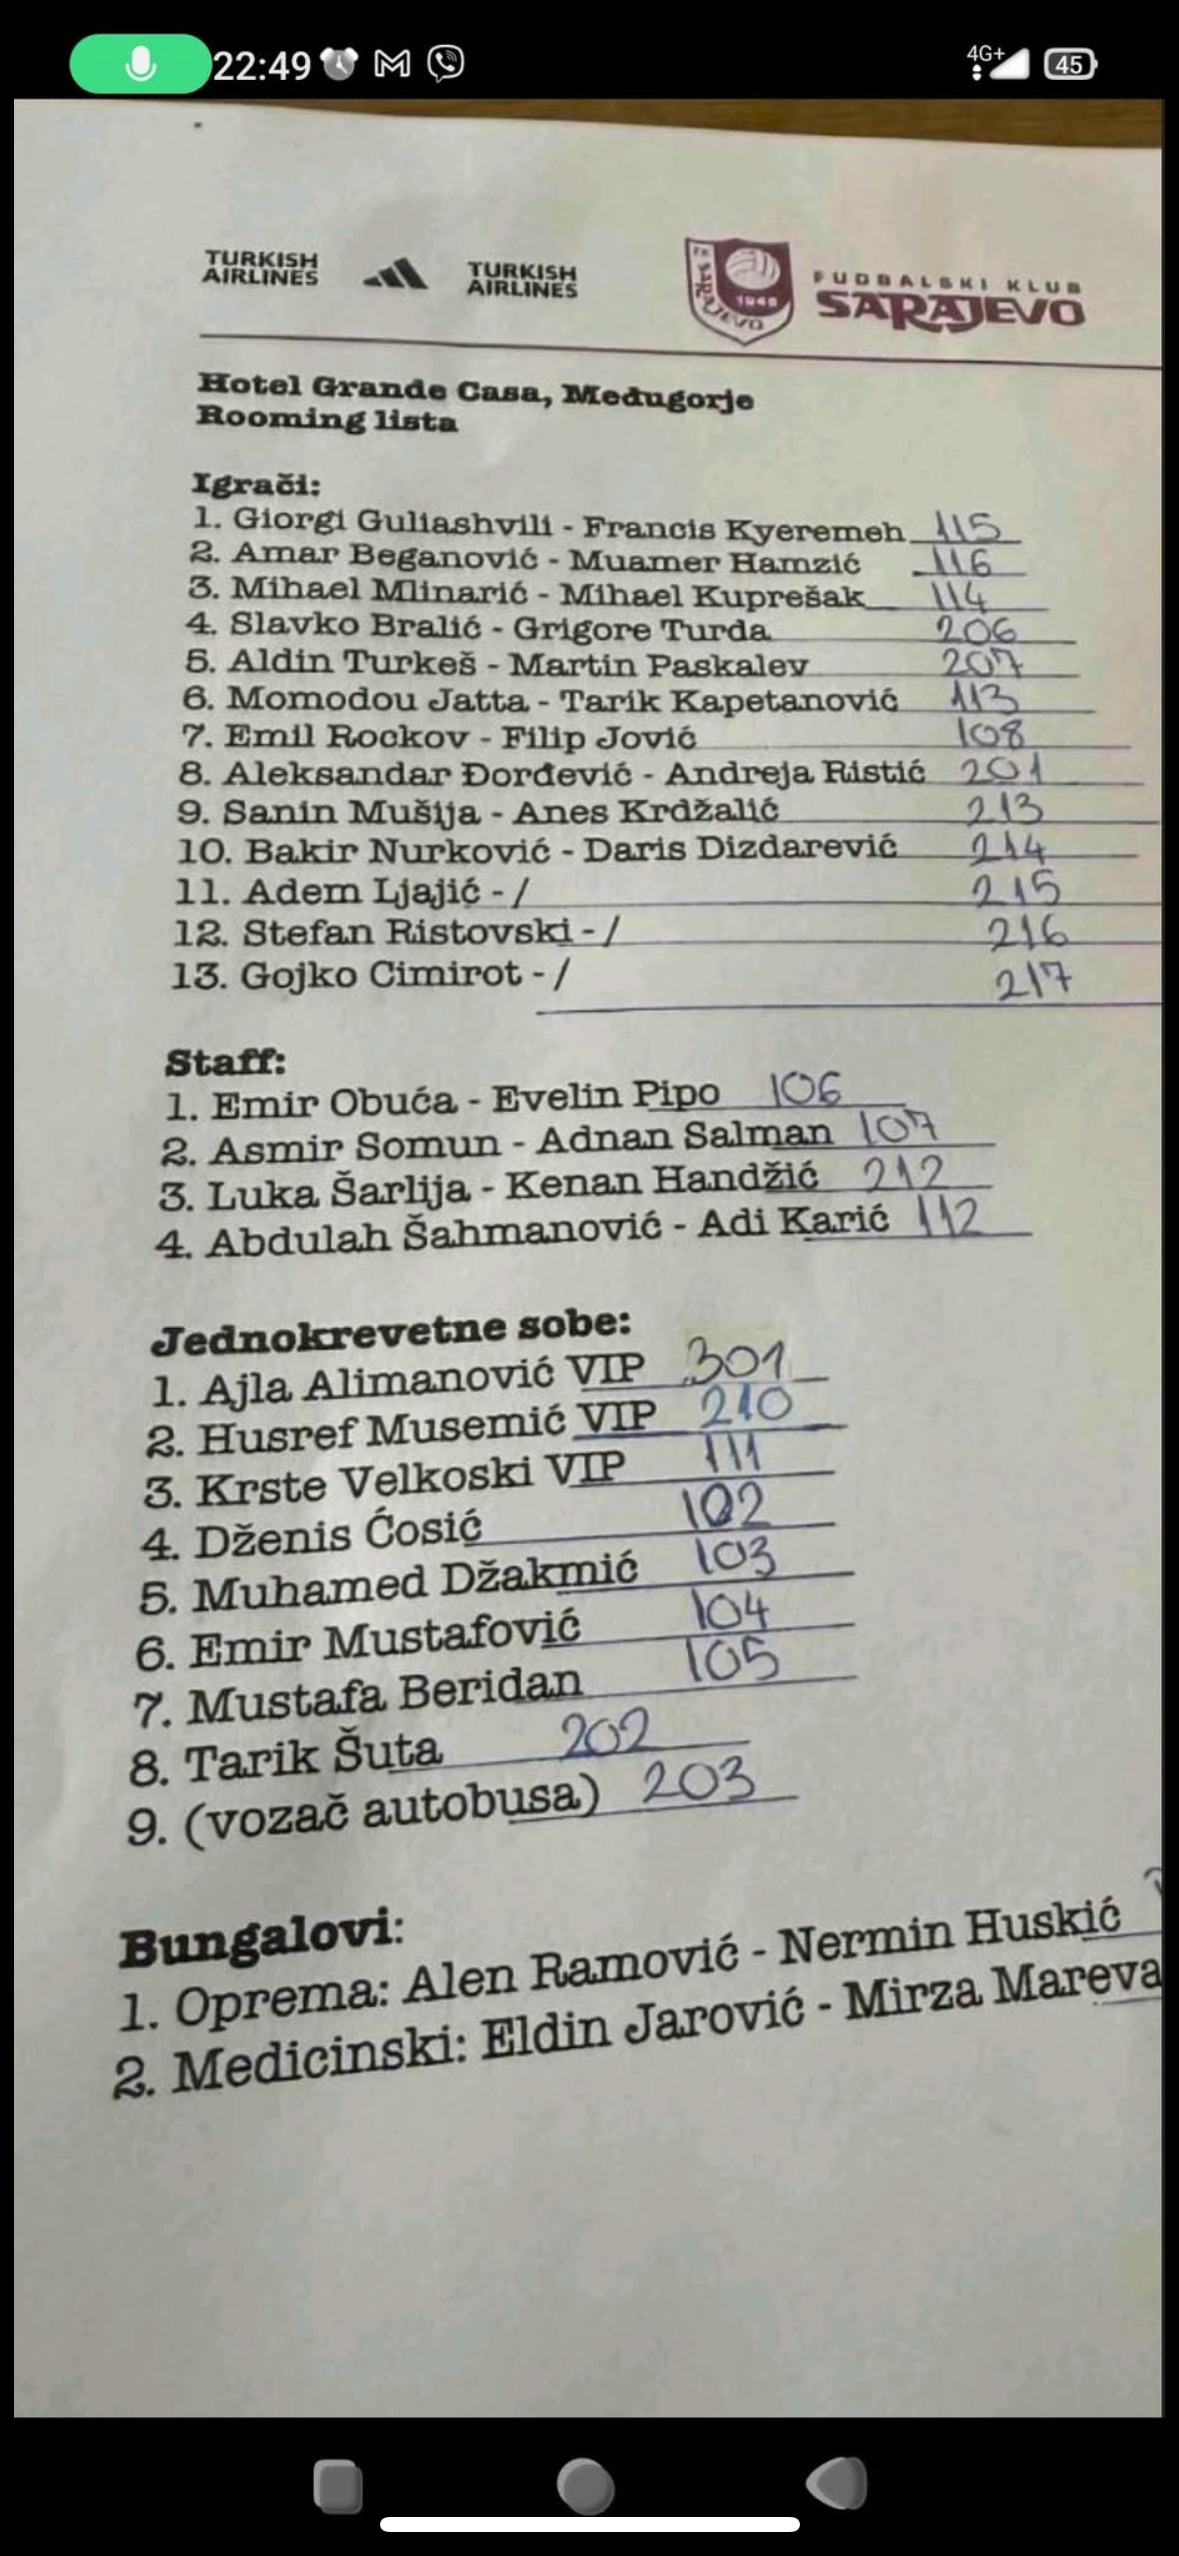 22:49
4G+
45
TURKISH AIRLINES TURKISH AIRLINES FK SARAJEVO 1946 FUDBALSKI KLUB SARAJEVO
Hotel Grande Casa, Međugorje
Rooming lista
Igrači:
1. Giorgi Guliashvili - Francis Kyeremeh 115
2. Amar Beganović - Muamer Hamzić 116
3. Mihael Mlinarić - Mihael Kuprešak 114
4. Slavko Bralić - Grigore Turda 206
5. Aldin Turkeš - Martin Paskalev 207
6. Momodou Jatta - Tarik Kapetanović 113
7. Emil Rockov - Filip Jović 108
8. Aleksandar Đorđević - Andreja Ristić 201
9. Sanin Mušija - Anes Krdžalić 213
10. Bakir Nurković - Daris Dizdarević 214
11. Adem Ljajić - / 215
12. Stefan Ristovski - / 216
13. Gojko Cimirot - / 217
Staff:
1. Emir Obuća - Evelin Pipo 106
2. Asmir Somun - Adnan Salman 107
3. Luka Šarlija - Kenan Handžić 212
4. Abdulah Šahmanović - Adi Karić 112
Jednokrevetne sobe:
1. Ajla Alimanović VIP 301
2. Husref Musemić VIP 210
3. Krste Velkoski VIP 111
4. Dženis Ćosić 102
5. Muhamed Džakmić 103
6. Emir Mustafović 104
7. Mustafa Beridan 105
8. Tarik Šuta 202
9. (vozač autobusa) 203
Bungalovi:
1. Oprema: Alen Ramović - Nermin Huskić
2. Medicinski: Eldin Jarović - Mirza Mareva